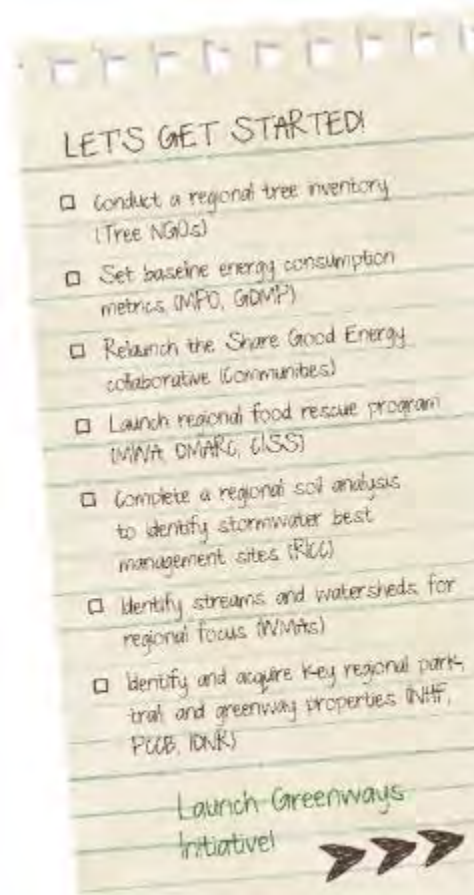 LET'S GET STARTED!
Conduct a regional tree inventory
(Tree NGOs)
Set baseline energy consumption
metrics (MPO, GDMP)
Relaunch the Share Good Energy
collaborative (Communities)
Launch regional food rescue program
(MWA, DMARC, CISS)
Complete a regional soil analysis
to identify stormwater best
management sites (RICC)
Identify streams and watersheds for
regional focus (WMAs)
Identify and acquire key regional park,
trail and greenway properties (INHF,
PCCB, IDNR)
Launch Greenways
Initiative!